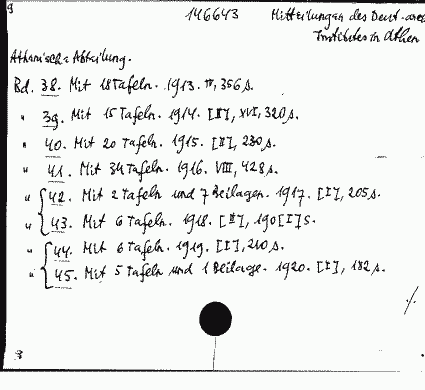 9 146643 Mitteilungen des Deut-
Institutes in Athen
Athenische Abteilung.
Bd. 38. Mit 18 Tafeln. 1913. IV, 356 s.
" 39. Mit 15 Tafeln. 1914. [II], XVI, 320 s.
" 40. Mit 20 Tafeln. 1915. [II], 230 s.
" 41. Mit 34 Tafeln. 1916. VIII, 428 s.
" 42. Mit 2 Tafeln und 7 Beilagen. 1917. [I], 205 s.
" 43. Mit 6 Tafeln. 1918. [II], 190 [I] s.
" 44. Mit 6 Tafeln. 1919. [I], 210 s.
" 45. Mit 5 Tafeln und 1 Beilage. 1920. [I], 182 s.
./.
9